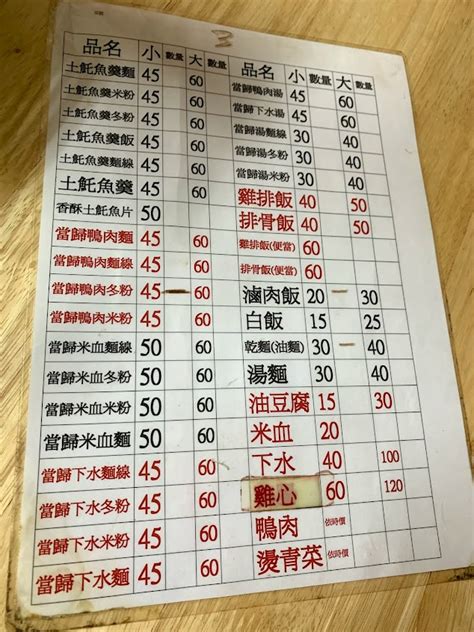 品名 小 數量 大 數量
土魠魚羹麵 45 60
土魠魚羹米粉 45 60
土魠魚羹冬粉 45 60
土魠魚羹飯 45 60
土魠魚羹麵線 45 60
土魠魚羹 45 60
香酥土魠魚片 50
當歸鴨肉麵 45 60
當歸鴨肉麵線 45 60
當歸鴨肉冬粉 45 60
當歸鴨肉米粉 45 60
當歸米血麵線 50 60
當歸米血冬粉 50 60
當歸米血米粉 50 60
當歸米血麵 50 60
當歸下水麵線 45 60
當歸下水冬粉 45 60
當歸下水米粉 45 60
當歸下水麵 45 60
品名 小 數量 大 數量
當歸鴨肉湯 45 60
當歸下水湯 45 60
當歸湯麵線 30 40
當歸湯冬粉 30 40
當歸湯米粉 30 40
雞排飯 40 50
排骨飯 40 50
雞排飯(便當) 60
排骨飯(便當) 60
滷肉飯 20 30
白飯 15 25
乾麵(油麵) 30 40
湯麵 30 40
油豆腐 15 30
米血 20
下水 40 100
雞心 60 120
鴨肉 依時價
燙青菜 依時價